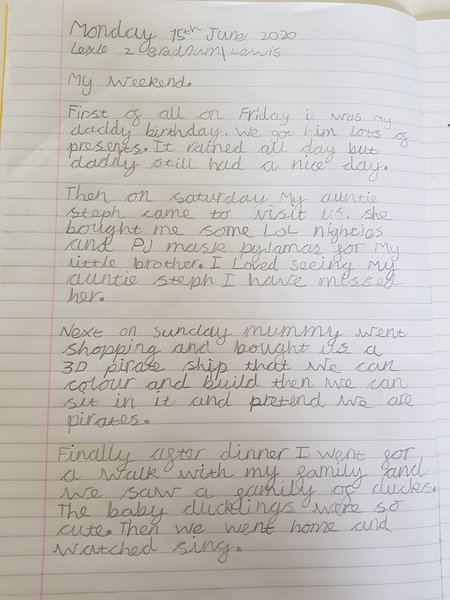 Monday 15th June 2020
Lexie 2 Bradnum/Lewis
My Weekend.
First of all on Friday i was my
daddy birthday. We got him lots of
presents. It rained all day but
daddy still had a nice day.
Then on saturday My auntie
steph came to visit us. she
bought me some LoL nighties
and PJ mask pyjamas for My
little brother. I Loved seeing My
auntie steph I have missed
her.
Next on sunday mummy went
shopping and bought us a
3D pirate ship that we can
colour and build then we can
sit in it and pretend we are
pirates.
Finally after dinner I went for
a walk with my family and
we saw a family of ducks.
The baby ducklings were so
cute. Then we went home and
watched sing.